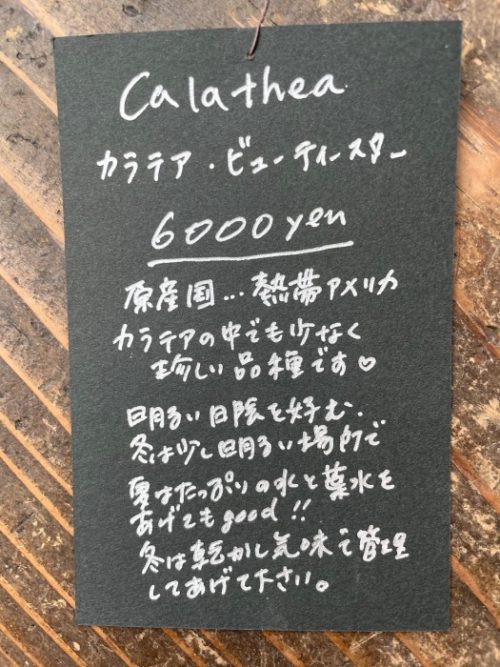 Calathea
カラテア・ビューティースター
6000yen
原産国…熱帯アメリカ
カラテアの中でも少なく
珍しい品種です♡
明るい日陰を好む.
冬は少し明るい場所で
夏はたっぷりの水と葉水を
あげてもgood!!
冬は乾かし気味で管理
してあげて下さい。